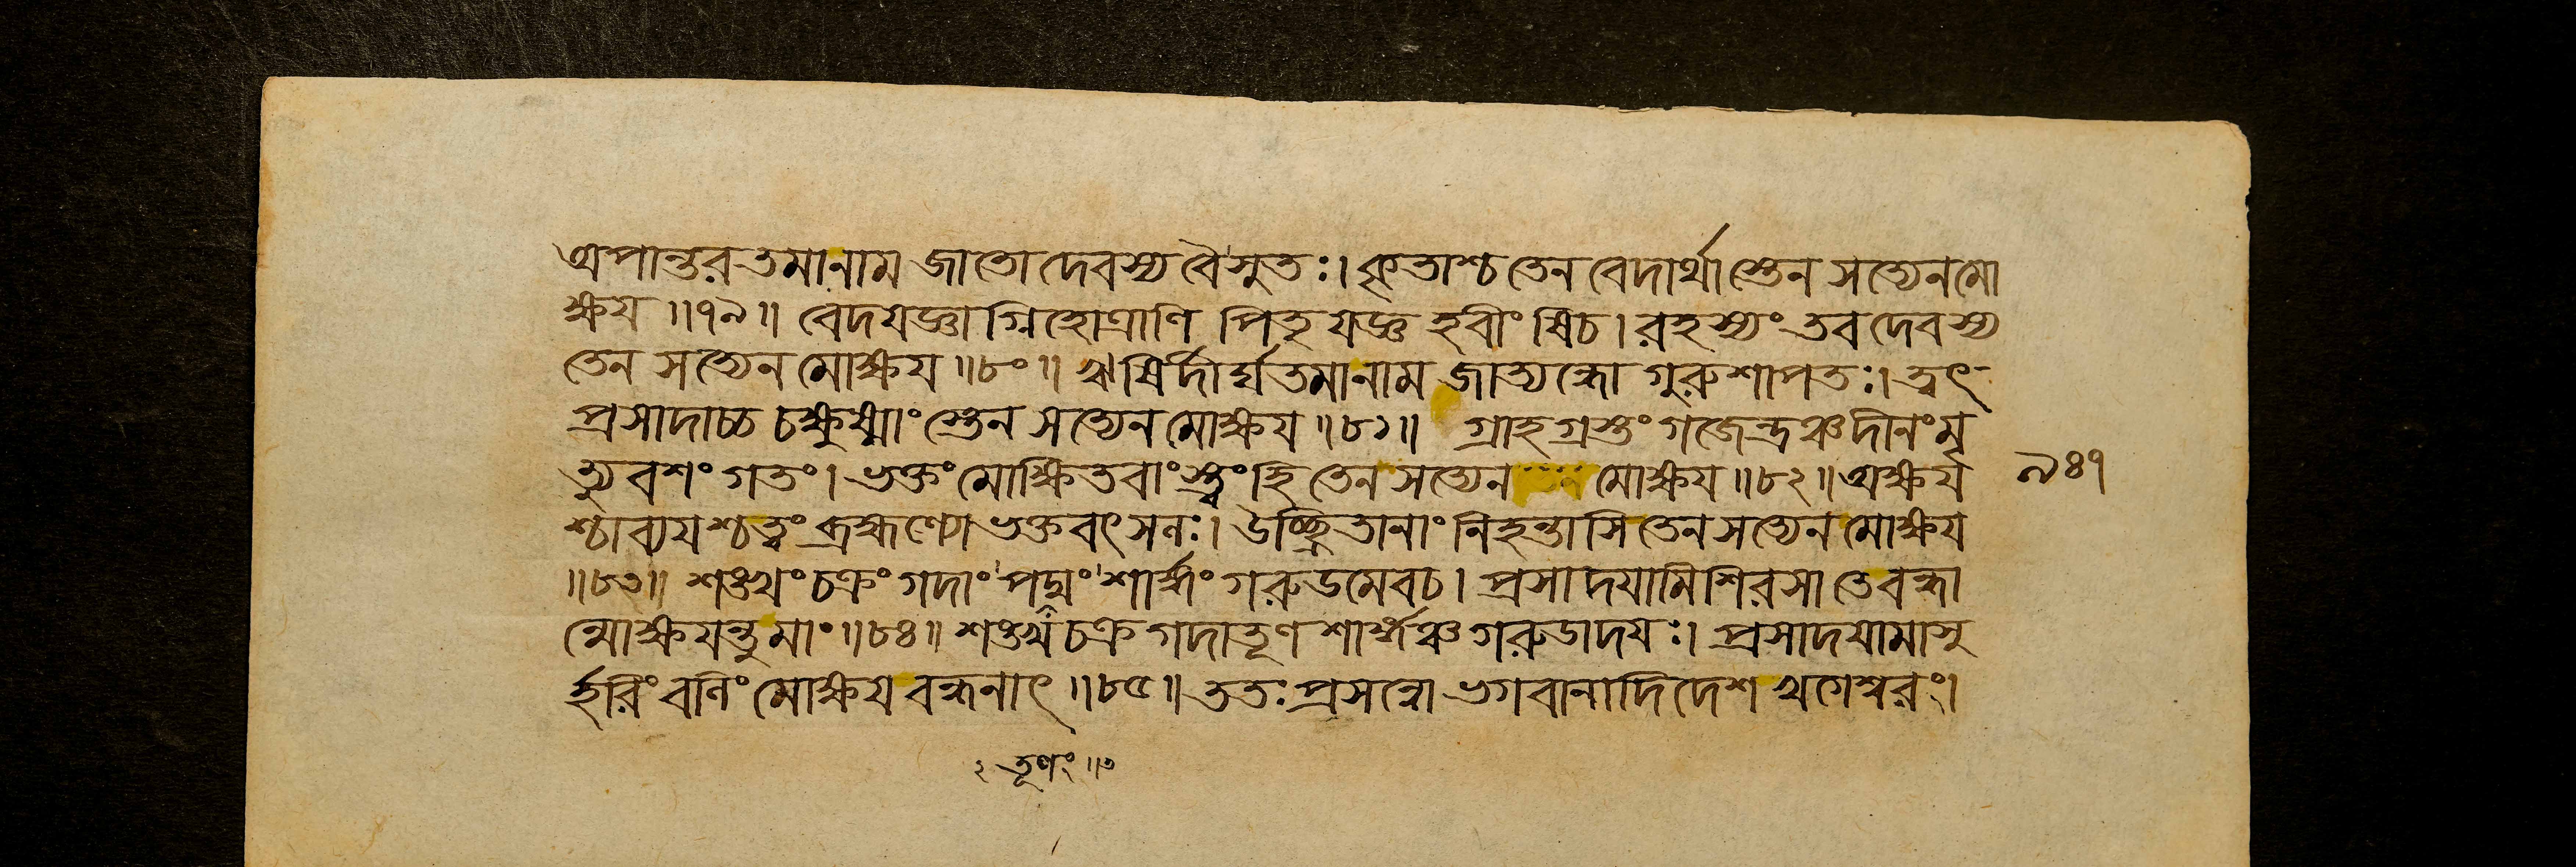 অপান্তরতমানাম জাতো দেবস্য বৈ সুতঃ। কৃতাশ্চ তেন বেদার্থাস্তেন সত্যেন মো
ক্ষয ॥৭৯॥ বেদযজ্ঞাগ্নিহোত্রাণি পিতৃযজ্ঞ হবীংষি চ। রহস্যং তব দেবস্য
তেন সত্যেন মোক্ষয ॥৮০॥ ঋষির্দীর্ঘতমানাম জাত্যন্ধো গুরুশাপতঃ। ত্বৎ-
প্রসাদাচ্চ চক্ষুষ্মাংস্তেন সত্যেন মোক্ষয ॥৮১॥ গ্রাহগ্রস্তং গজেন্দ্রঞ্চ দীনং মৃ
ত্যুবশং গতং। ভক্তং মোক্ষিতবাংস্ত্বং হি তেন সত্যেন মোক্ষয ॥৮২॥ অক্ষয
শ্চাব্যযশ্চ ত্বং ব্রহ্মণ্যো ভক্তবৎসলঃ। উচ্ছ্রিতানাং নিহন্তাসি তেন সত্যেন মোক্ষয
॥৮৩॥ শঙ্খং চক্রং গদাং পদ্মং শার্ঙ্গং গরুডমেব চ। প্রসাদযামি শিরসা তে বন্ধা
ন্মোক্ষযন্তু মাং ॥৮৪॥ শঙ্খ চক্র গদা তূণ শার্ঙ্গঞ্চ গরুডাদযঃ। প্রসাদযামাসু
র্হরিং বলিং মোক্ষয বন্ধনাৎ ॥৮৫॥ ততঃ প্রসন্নো ভগবানাদিদেশ খগেশ্বরং।
৯৪৭
২ তূণং ॥৩